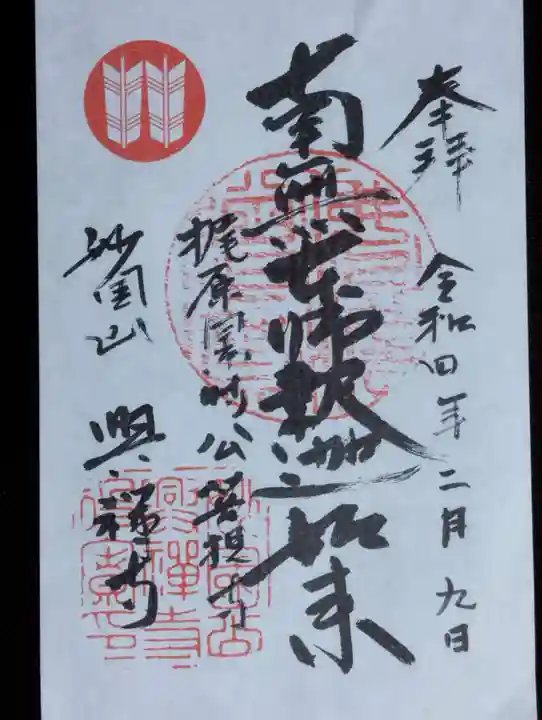 奉拝
令和四年二月九日
南無本師釈迦如来
梶原景時公菩提寺
妙国山
興禅寺